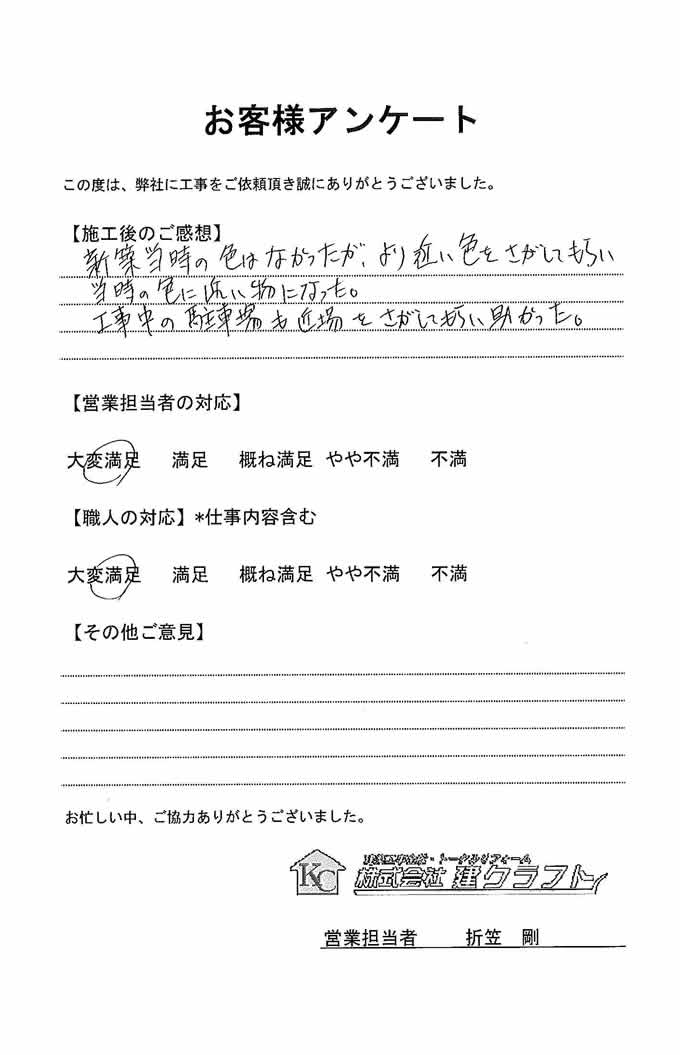 お客様アンケート
この度は、弊社に工事をご依頼頂き誠にありがとうございました。
【施工後のご感想】
新築当時の色はなかったが、より近い色をさがしてもらい
当時の色に近い物になった。
工事中の駐車場も近場をさがしてもらい助かった。
【営業担当者の対応】
大変満足 満足 概ね満足 やや不満 不満
【職人の対応】*仕事内容含む
大変満足 満足 概ね満足 やや不満 不満
【その他ご意見】
お忙しい中、ご協力ありがとうございました。
KC
トータルリフォーム
株式会社 建クラフト
営業担当者 折笠 剛